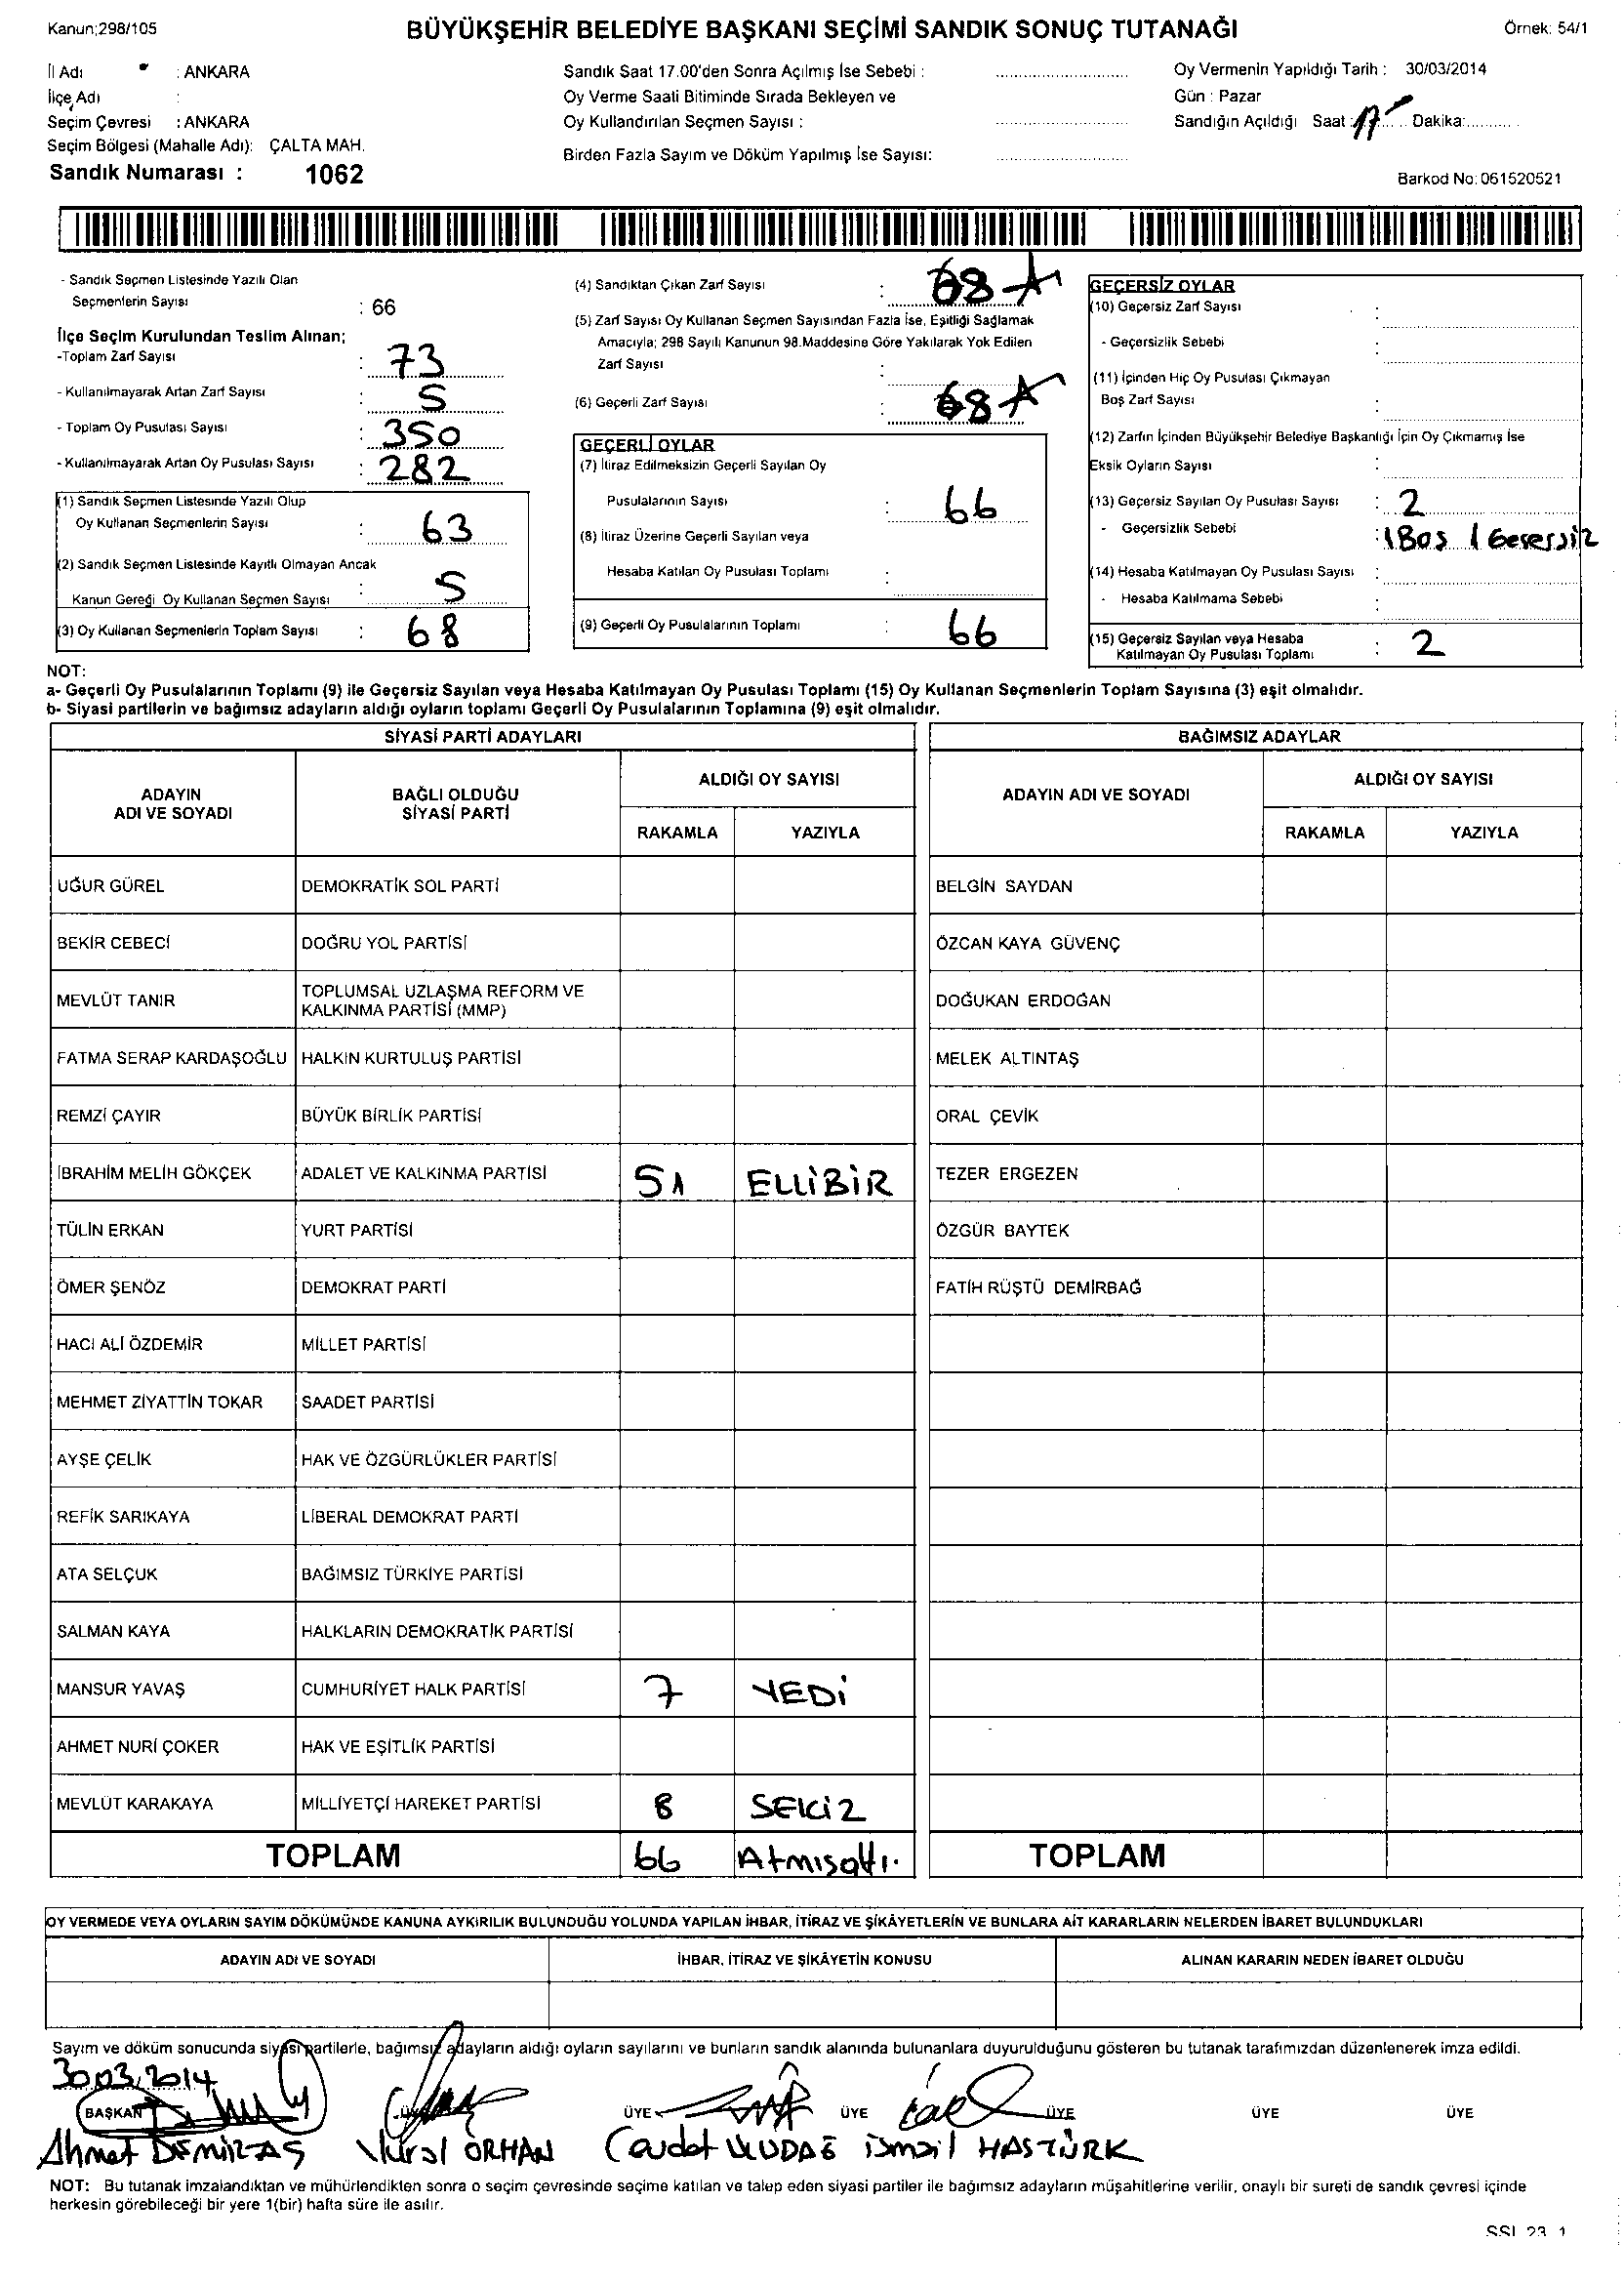 Kanun;298/105
BÜYÜKŞEHİR BELEDİYE BAŞKANI SEÇİMİ SANDIK SONUÇ TUTANAĞI
Örnek: 54/1
İl Adı : ANKARA
İlçe Adı :
Seçim Çevresi : ANKARA
Seçim Bölgesi (Mahalle Adı): ÇALTA MAH.
Sandık Numarası : 1062
Sandık Saat 17.00'den Sonra Açılmış İse Sebebi :
Oy Verme Saati Bitiminde Sırada Bekleyen ve
Oy Kullandırılan Seçmen Sayısı :
Birden Fazla Sayım ve Döküm Yapılmış İse Sayısı:
Oy Vermenin Yapıldığı Tarih : 30/03/2014
Gün : Pazar
Sandığın Açıldığı Saat : 17 Dakika:
Barkod No: 061520521
- Sandık Seçmen Listesinde Yazılı Olan
Seçmenlerin Sayısı : 66
İlçe Seçim Kurulundan Teslim Alınan;
-Toplam Zarf Sayısı : 73
- Kullanılmayarak Artan Zarf Sayısı : 5
- Toplam Oy Pusulası Sayısı : 350
- Kullanılmayarak Artan Oy Pusulası Sayısı : 282
(1) Sandık Seçmen Listesinde Yazılı Olup
Oy Kullanan Seçmenlerin Sayısı : 63
(2) Sandık Seçmen Listesinde Kayıtlı Olmayan Ancak
Kanun Gereği Oy Kullanan Seçmen Sayısı : 5
(3) Oy Kullanan Seçmenlerin Toplam Sayısı : 68
(4) Sandıktan Çıkan Zarf Sayısı : 68
(5) Zarf Sayısı Oy Kullanan Seçmen Sayısından Fazla İse, Eşitliği Sağlamak
Amacıyla; 298 Sayılı Kanunun 98.Maddesine Göre Yakılarak Yok Edilen
Zarf Sayısı :
(6) Geçerli Zarf Sayısı : 68
GEÇERLİ OYLAR
(7) İtiraz Edilmeksizin Geçerli Sayılan Oy
Pusulalarının Sayısı : 66
(8) İtiraz Üzerine Geçerli Sayılan veya
Hesaba Katılan Oy Pusulası Toplamı :
(9) Geçerli Oy Pusulalarının Toplamı : 66
GEÇERSİZ OYLAR
(10) Geçersiz Zarf Sayısı :
- Geçersizlik Sebebi :
(11) İçinden Hiç Oy Pusulası Çıkmayan
Boş Zarf Sayısı :
(12) Zarfın İçinden Büyükşehir Belediye Başkanlığı İçin Oy Çıkmamış İse
Eksik Oyların Sayısı :
(13) Geçersiz Sayılan Oy Pusulası Sayısı : 2
- Geçersizlik Sebebi : 1 Boş 1 Geçersiz
(14) Hesaba Katılmayan Oy Pusulası Sayısı :
- Hesaba Katılmama Sebebi :
(15) Geçersiz Sayılan veya Hesaba
Katılmayan Oy Pusulası Toplamı : 2
NOT:
a- Geçerli Oy Pusulalarının Toplamı (9) ile Geçersiz Sayılan veya Hesaba Katılmayan Oy Pusulası Toplamı (15) Oy Kullanan Seçmenlerin Toplam Sayısına (3) eşit olmalıdır.
b- Siyasi partilerin ve bağımsız adayların aldığı oyların toplamı Geçerli Oy Pusulalarının Toplamına (9) eşit olmalıdır.
SİYASİ PARTİ ADAYLARI
BAĞIMSIZ ADAYLAR
ADAYIN
ADI VE SOYADI
BAĞLI OLDUĞU
SİYASİ PARTİ
ALDIĞI OY SAYISI
RAKAMLA YAZIYLA
ADAYIN ADI VE SOYADI
ALDIĞI OY SAYISI
RAKAMLA YAZIYLA
UĞUR GÜREL DEMOKRATİK SOL PARTİ BELGİN SAYDAN
BEKİR CEBECİ DOĞRU YOL PARTİSİ ÖZCAN KAYA GÜVENÇ
MEVLÜT TANIR TOPLUMSAL UZLAŞMA REFORM VE
KALKINMA PARTİSİ (MMP) DOĞUKAN ERDOĞAN
FATMA SERAP KARDAŞOĞLU HALKIN KURTULUŞ PARTİSİ MELEK ALTINTAŞ
REMZİ ÇAYIR BÜYÜK BİRLİK PARTİSİ ORAL ÇEVİK
İBRAHİM MELİH GÖKÇEK ADALET VE KALKINMA PARTİSİ 51 ELLİBİR TEZER ERGEZEN
TÜLİN ERKAN YURT PARTİSİ ÖZGÜR BAYTEK
ÖMER ŞENÖZ DEMOKRAT PARTİ FATİH RÜŞTÜ DEMİRBAĞ
HACI ALİ ÖZDEMİR MİLLET PARTİSİ
MEHMET ZİYATTİN TOKAR SAADET PARTİSİ
AYŞE ÇELİK HAK VE ÖZGÜRLÜKLER PARTİSİ
REFİK SARIKAYA LİBERAL DEMOKRAT PARTİ
ATA SELÇUK BAĞIMSIZ TÜRKİYE PARTİSİ
SALMAN KAYA HALKLARIN DEMOKRATİK PARTİSİ
MANSUR YAVAŞ CUMHURİYET HALK PARTİSİ 7 YEDİ
AHMET NURİ ÇOKER HAK VE EŞİTLİK PARTİSİ
MEVLÜT KARAKAYA MİLLİYETÇİ HAREKET PARTİSİ 8 SEKİZ
TOPLAM 66 Atmışaltı. TOPLAM
OY VERMEDE VEYA OYLARIN SAYIM DÖKÜMÜNDE KANUNA AYKIRILIK BULUNDUĞU YOLUNDA YAPILAN İHBAR, İTİRAZ VE ŞİKÂYETLERİN VE BUNLARA AİT KARARLARIN NELERDEN İBARET BULUNDUKLARI
ADAYIN ADI VE SOYADI İHBAR, İTİRAZ VE ŞİKÂYETİN KONUSU ALINAN KARARIN NEDEN İBARET OLDUĞU
Sayım ve döküm sonucunda siyasi partilerle, bağımsız adayların aldığı oyların sayılarını ve bunların sandık alanında bulunanlara duyurulduğunu gösteren bu tutanak tarafımızdan düzenlenerek imza edildi.
30.03.2014
BAŞKAN ÜYE ÜYE ÜYE ÜYE ÜYE ÜYE
Ahmet DEMİRTAŞ Vural ORHAN Cevdet ULUDAĞ İsmail HASTÜRK
NOT: Bu tutanak imzalandıktan ve mühürlendikten sonra o seçim çevresinde seçime katılan ve talep eden siyasi partiler ile bağımsız adayların müşahitlerine verilir, onaylı bir sureti de sandık çevresi içinde
herkesin görebileceği bir yere 1(bir) hafta süre ile asılır.